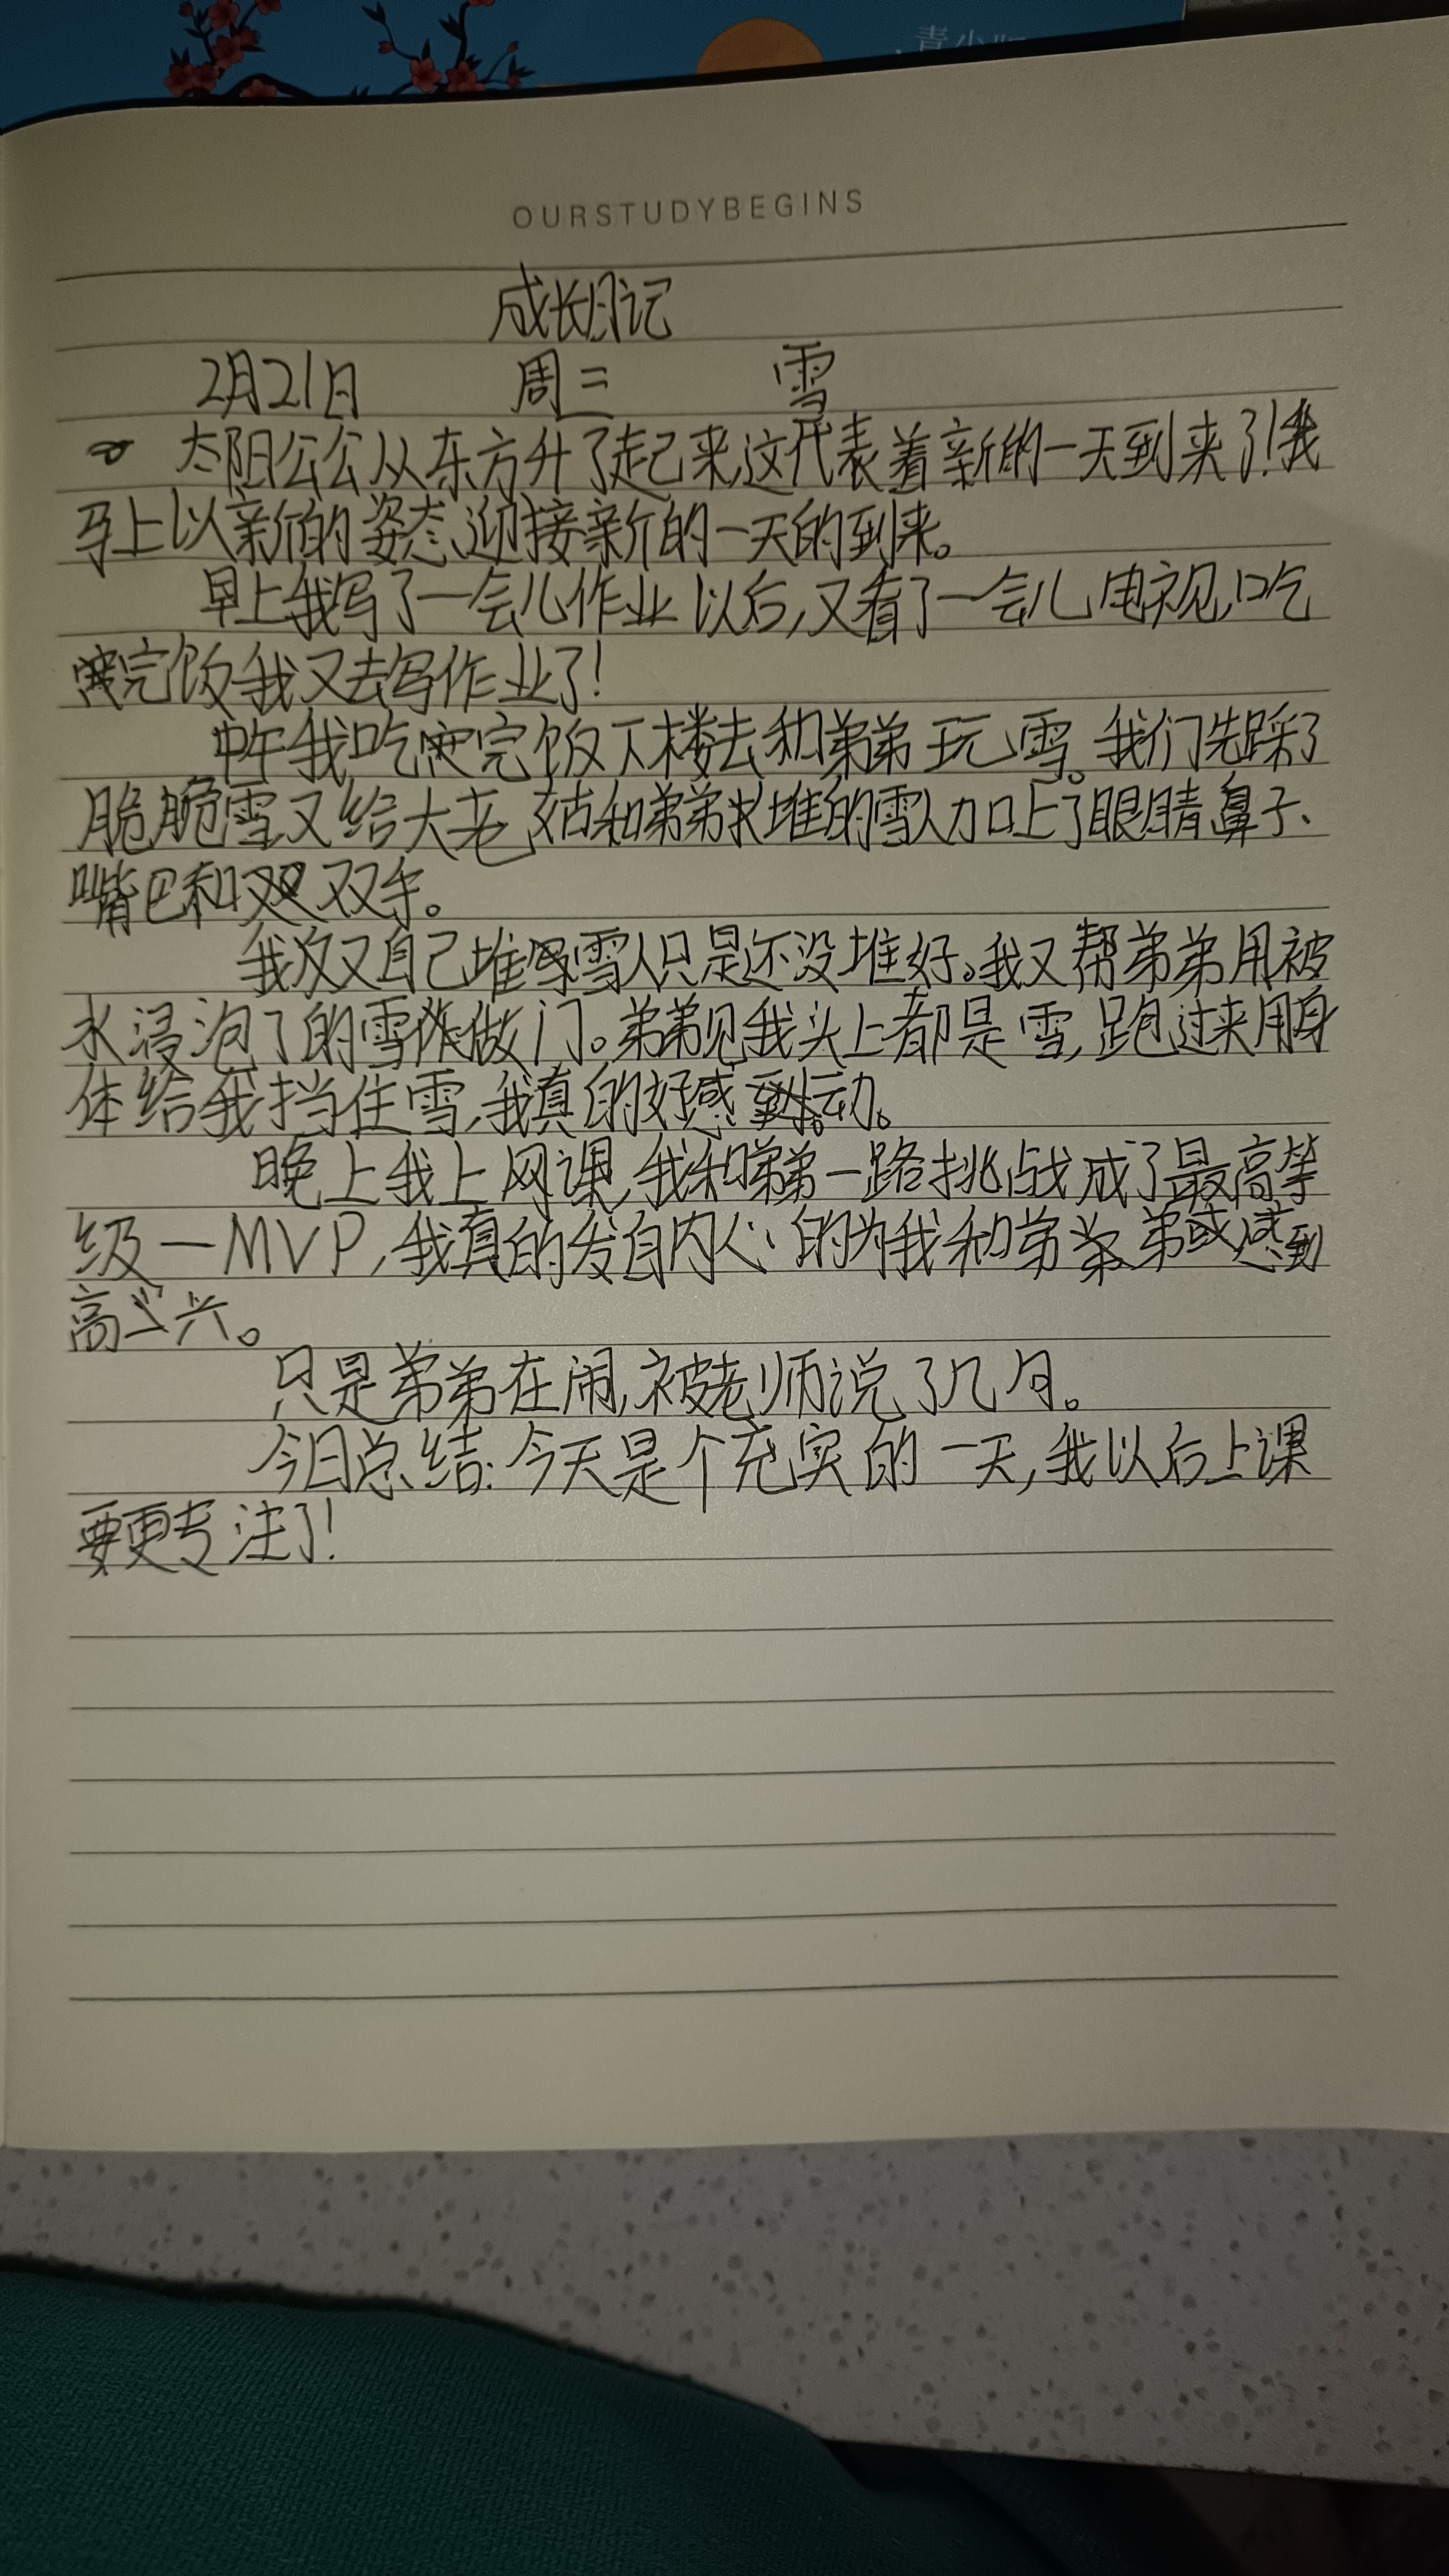 青少版
OURSTUDYBEGINS
成长日记
2月21日 周三 雪
太阳公公从东方升了起来,这代表着新的一天到来了!我
马上以新的姿态迎接新的一天的到来。
早上我写了一会儿作业以后,又看了一会儿电视,吃
完饭我又去写作业了!
中午我吃完饭下楼去和弟弟玩雪。我们先踩了
脆脆雪又给大老姑和弟弟堆的雪人加上了眼睛鼻子、
嘴巴和双手。
我又自己堆雪人只是还没堆好。我又帮弟弟用被
水浸泡了的雪做门。弟弟见我头上都是雪,跑过来用身
体给我挡住雪,我真的好感动。
晚上我上网课,我和弟弟一路挑战成了最高等
级—MVP,我真的发自内心的为我和弟弟感到
高兴。
只是弟弟在闹,被老师说了几句。
今日总结:今天是个充实的一天,我以后上课
要更专注了!